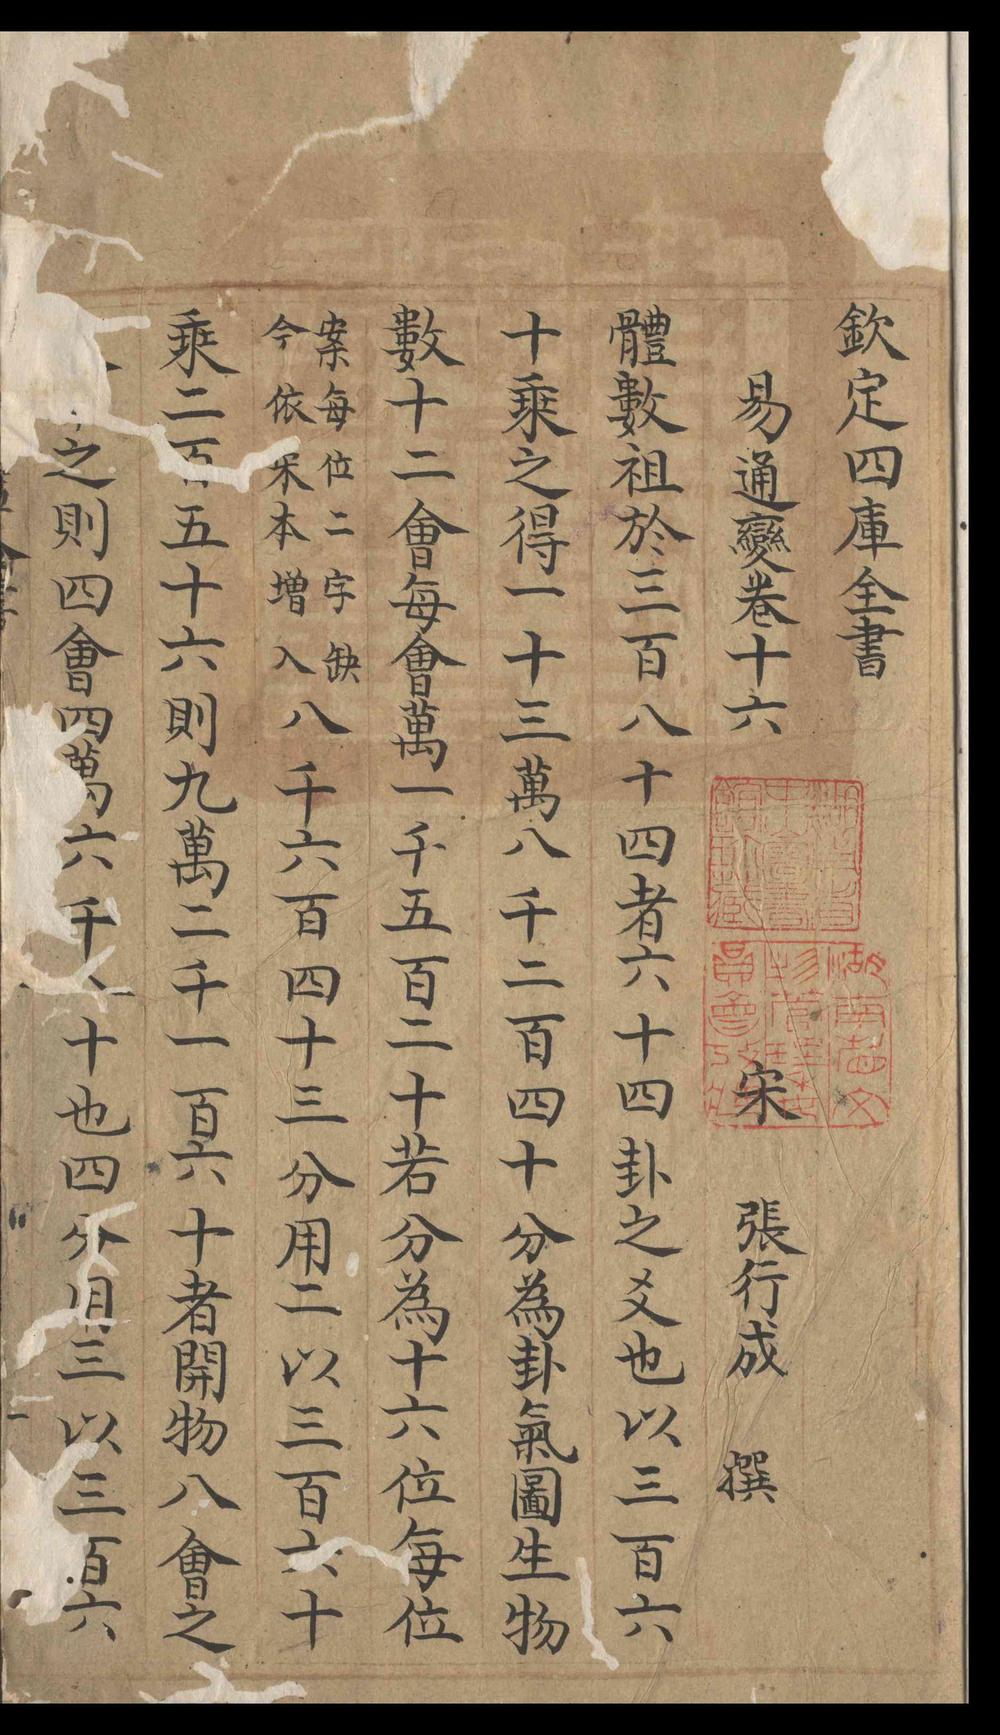 欽定四庫全書
易通變卷十六 宋 張行成 撰
體數祖於三百八十四者六十四卦之爻也以三百六
十乘之得一十三萬八千二百四十分為卦氣圖生物
數十二會每會萬一千五百二十若分為十六位每位
案每位二字缺
今依宋本增入
八千六百四十三分用二以三百六十
乘二百五十六則九萬二千一百六十者開物八會之
之則四會四萬六千十也四分用三以三百六